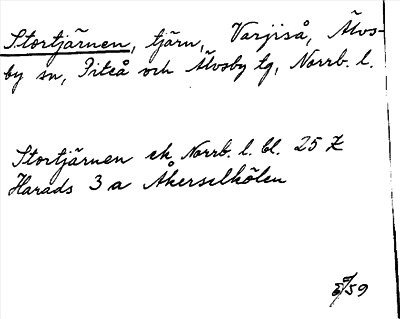 Stortjärnen, tjärn, Varjiså, Älvs-
by sn, Piteå och Älvsby tg, Norrb. l.
Stortjärnen ek Norrb. l. bl. 25 Z
Harads 3 a Åkerselkölen
59